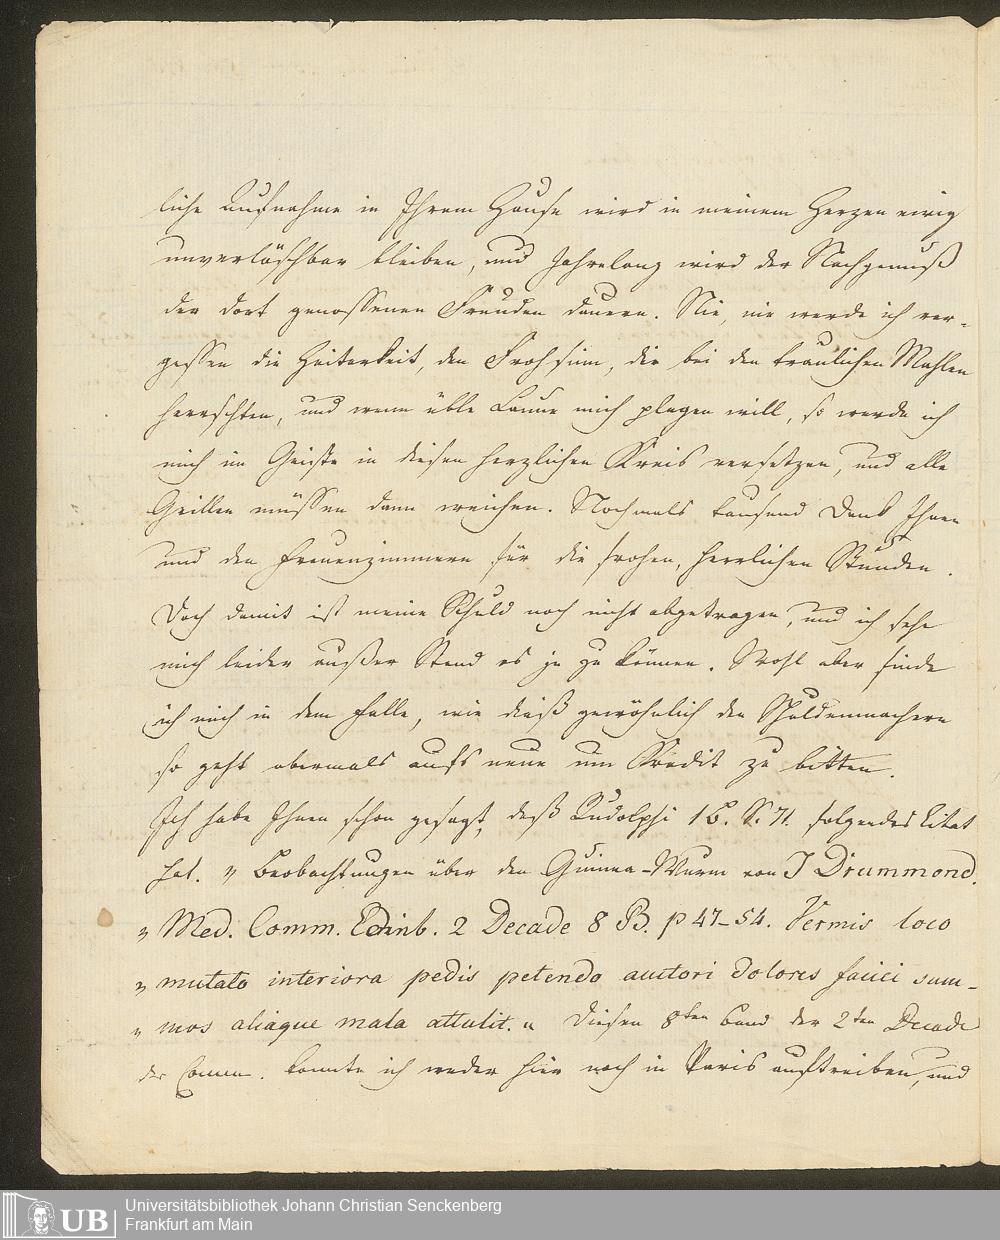 liche Aufnahme in Ihrem Hause wird in meinem Herzen ewig
unverlöschbar bleiben, und Jahrelang wird der Nachgenuß
der dort genossenen Freuden dauern. Nie, nie werde ich ver-
gessen die Heiterkeit, den Frohsinn, die bei den traulichen Mahlen
herrschten, und wenn üble Laune mich plagen will, so werde ich
mich im Geiste in diesen herzlichen Kreis versetzen, und alle
Grillen müssen dann weichen. Nochmals tausend Dank Ihnen
und den Frauenzimmern für die frohen, herrlichen Stunden.
Doch damit ist meine Schuld noch nicht abgetragen, und ich sehe
mich leider außer Stand es je zu können. Wohl aber finde
ich mich in dem Falle, wie dieß gewöhnlich den Schuldenmachern
so geht abermals aufs neue um Kredit zu bitten.
Ich habe Ihnen schon gesagt, daß Rudolphi 1 B. S. 71. folgendes Citat
hat. „ Beobachtungen über den Guinea-Wurm von J Drummond.
„ Med. Comm. Edinb. 2 Decade 8 B. p 47-54. Vermis loco
„ mutato interiora pedis petendo auctori dolores saevi sum-
„ mos aliaque mala attulit. “ Diesen 8ten Band der 2ten Decade
der Comm. konnte ich weder hier noch in Paris auftreiben, und
Universitätsbibliothek Johann Christian Senckenberg
Frankfurt am Main
UB